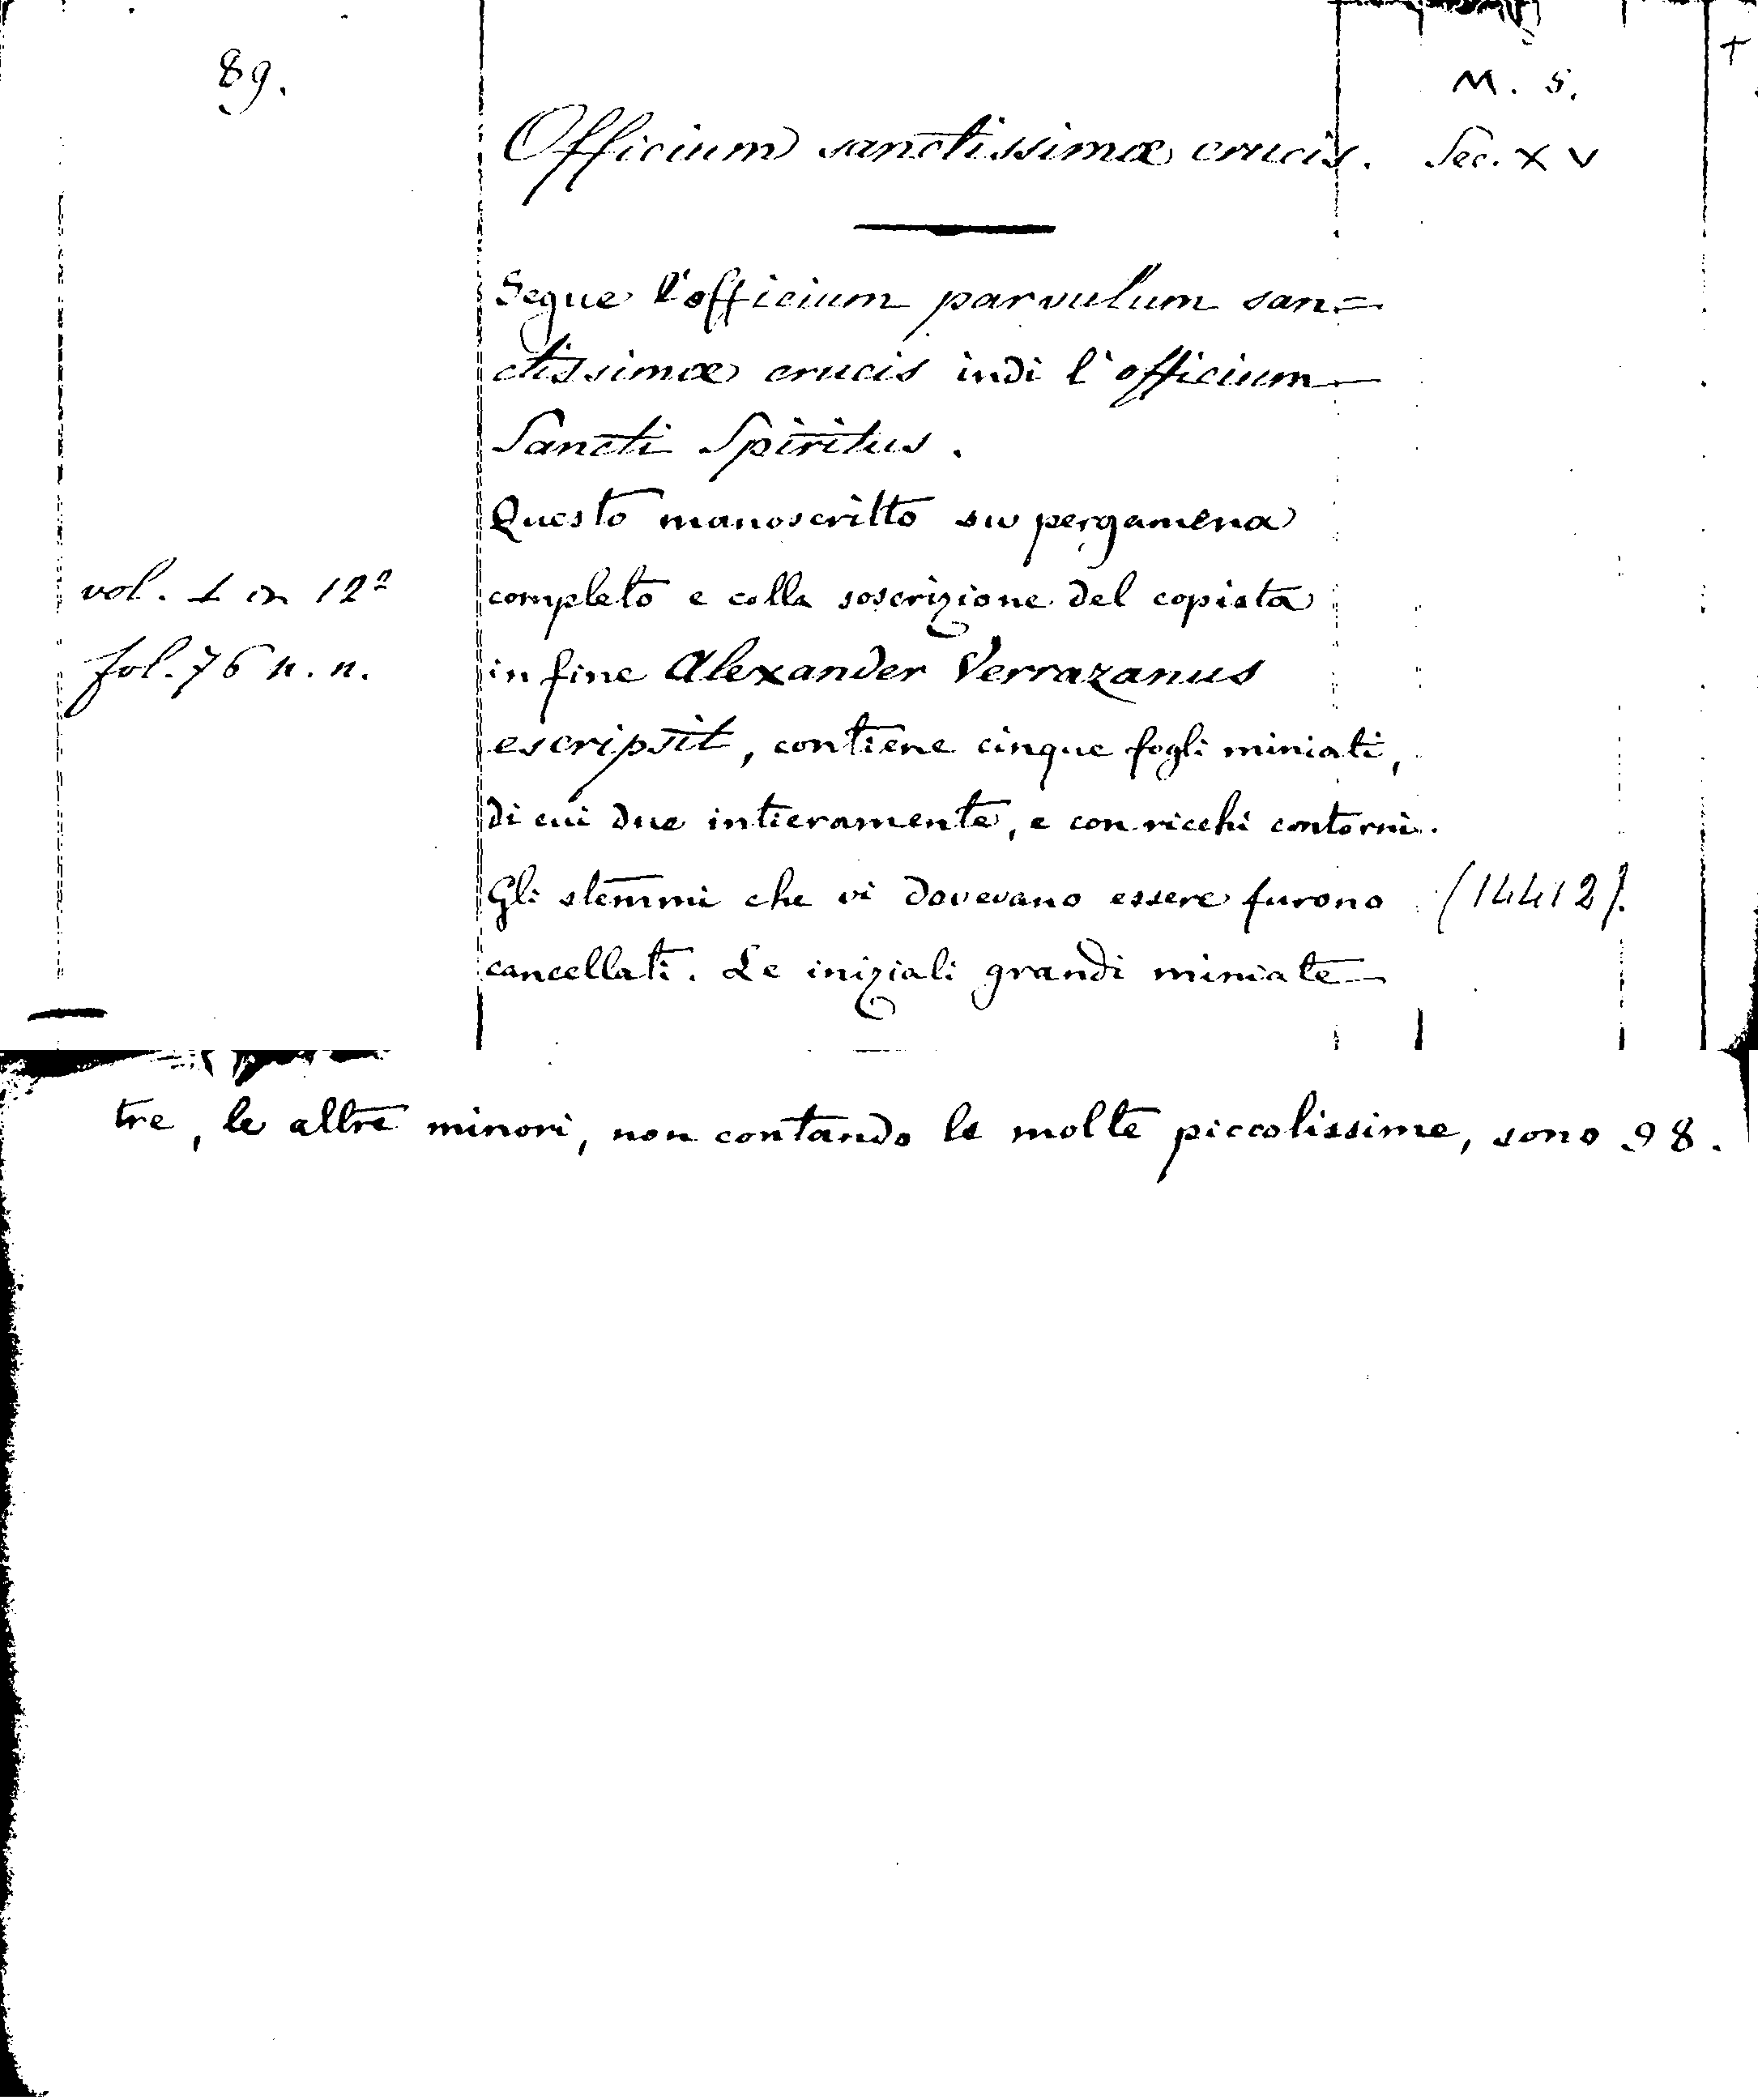 89.
M. S.
+
Officium sanctissimœ crucis. Sec. XV
Segue l'officium parvulum san=
ctissimœ crucis indi l'officium
Sancti Spiritus.
Questo manoscritto su pergamena
vol. 1 in 12º
completo e colla soscrizione del copista
fol. 76 n. n.
in fine Alexander Verrazanus
escripsit, contiene cinque fogli miniati,
di cui due intieramente, e con ricchi contorni.
Gli stemmi che vi dovevano essere furono
(14412).
cancellati. Le iniziali grandi miniate
tre, le altre minori, non contando le molte piccolissime, sono 98.